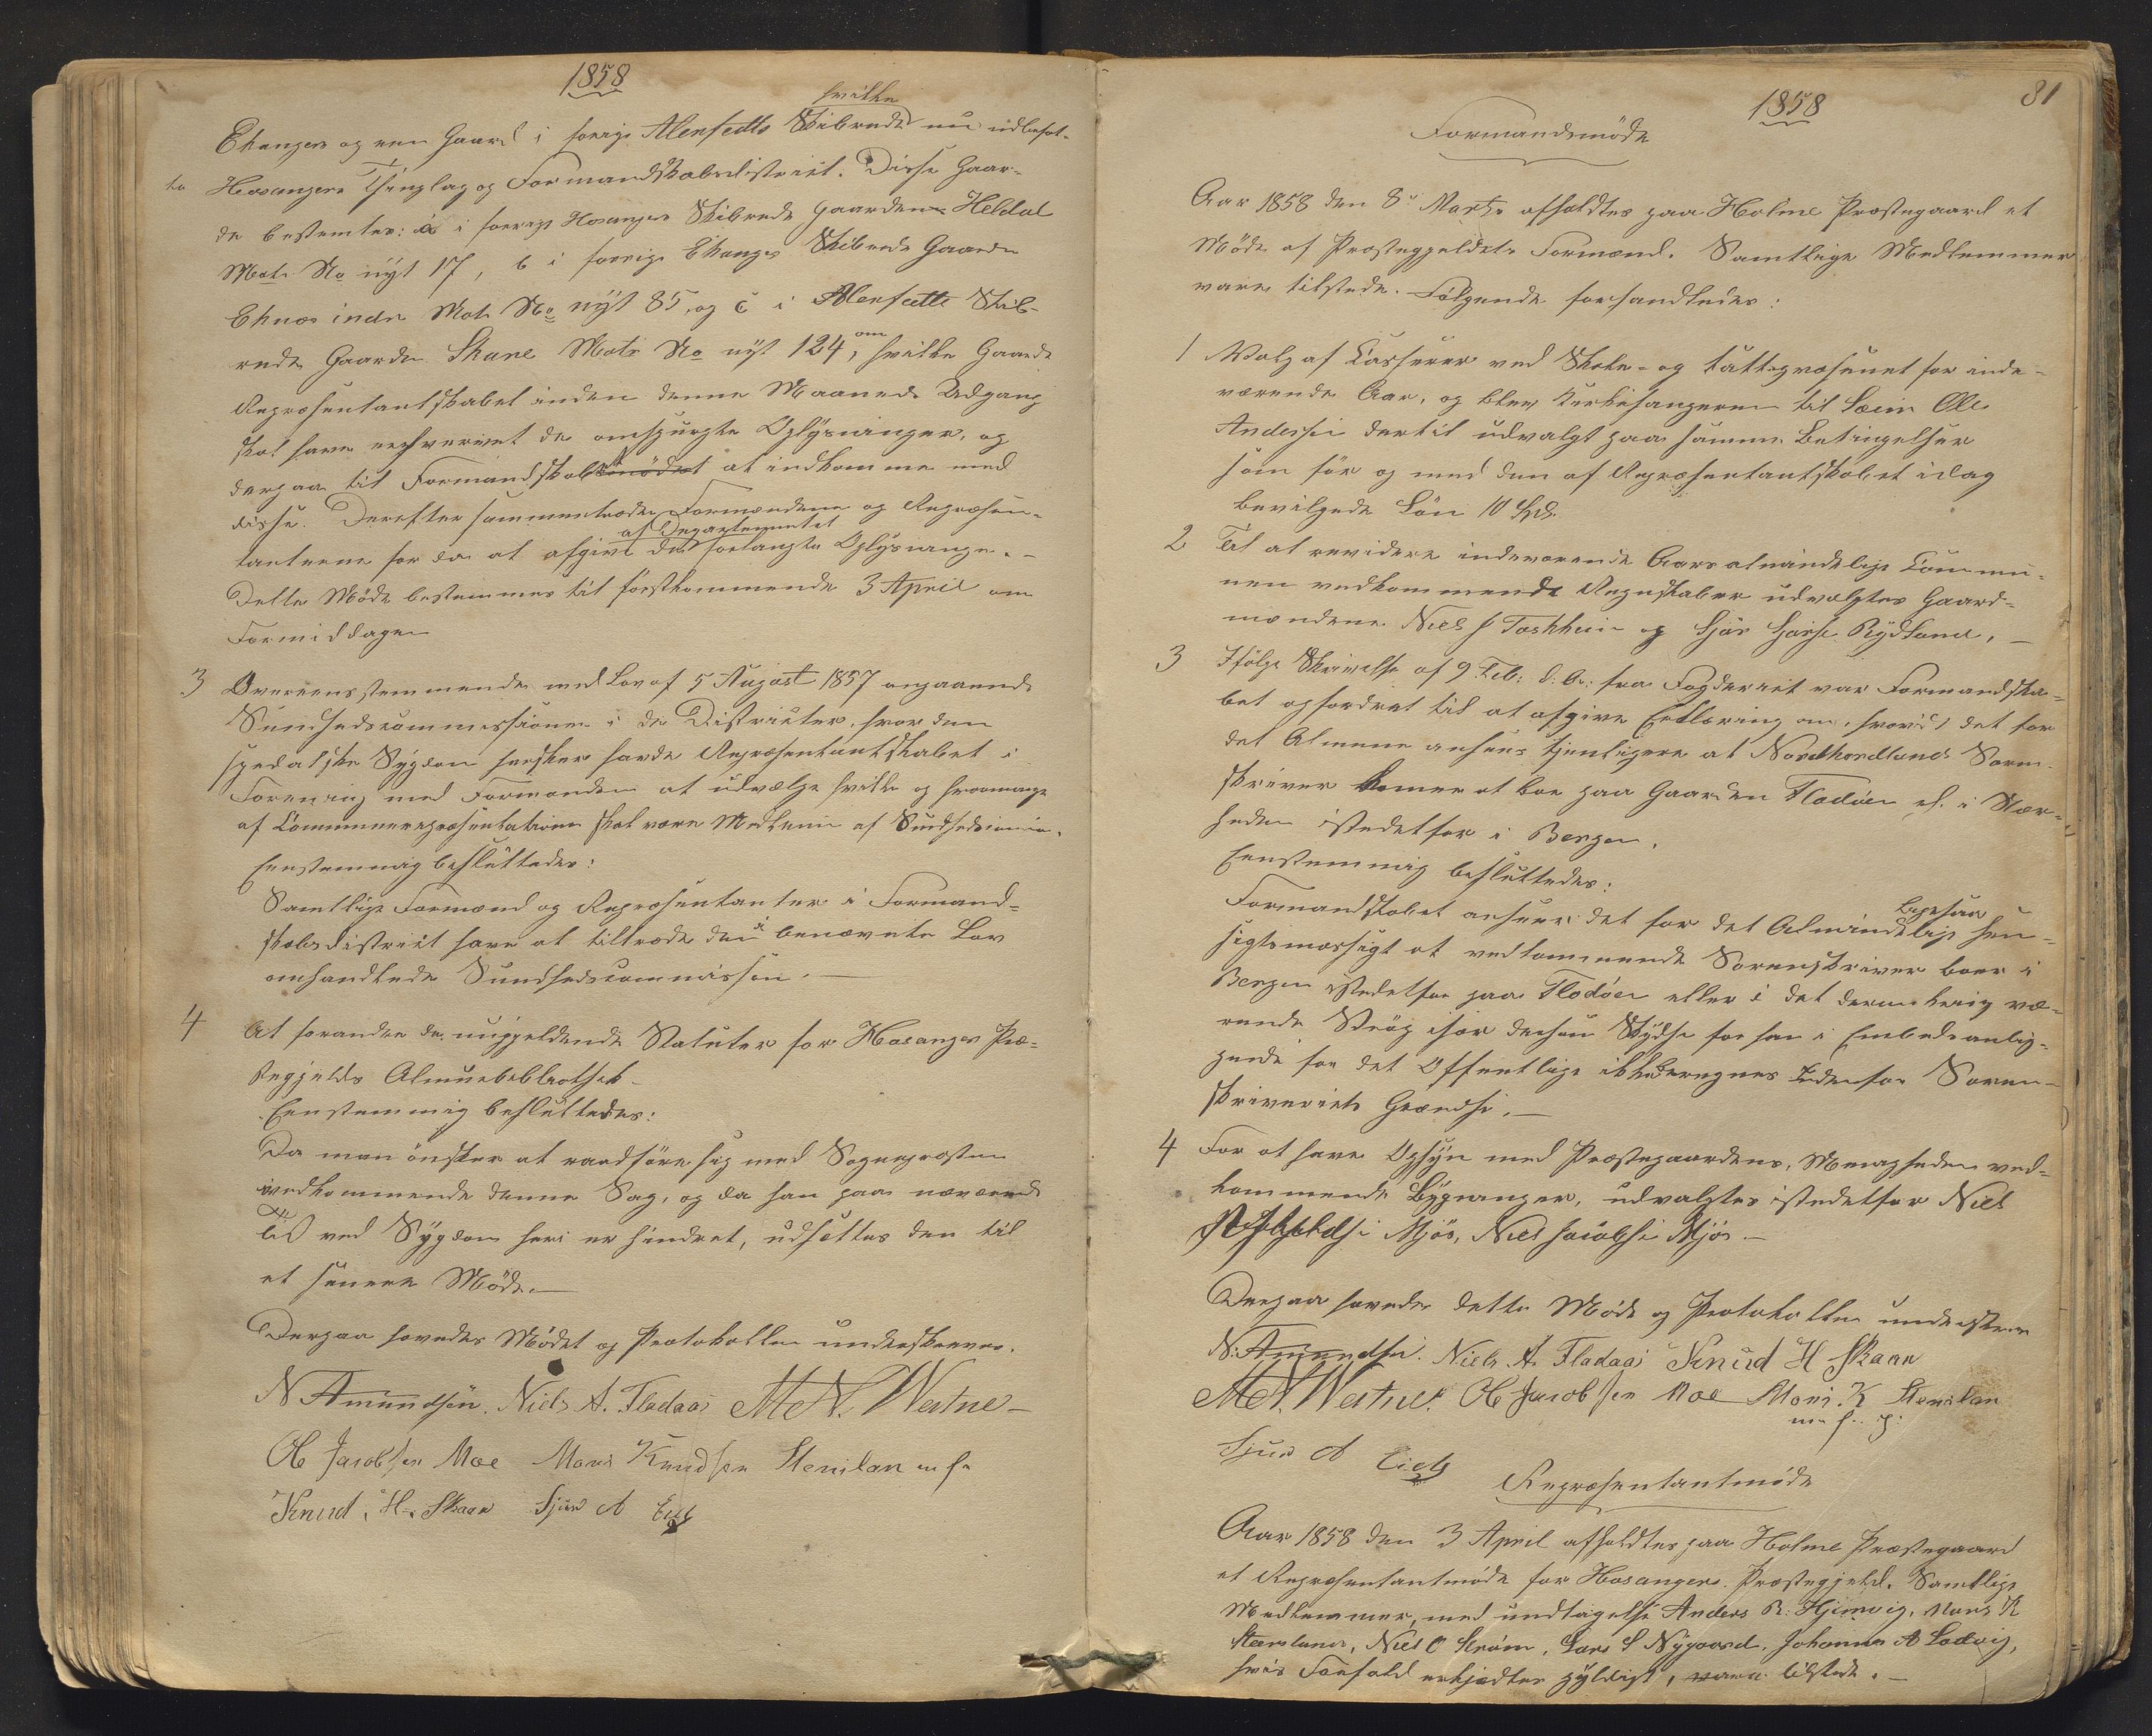 1858
hvilke
Ekanger og een Gaard i forrige Alenfedts Skibrede nu indbefat-
ta Hosangers Thinglag og Formandskabsdistrict. Disse Gaar-
de bestemtes: a i forrige Hosanger Skibrede Gaarden Heldal
Matr No nyt 17, b i forrige Ekanger Skibrede Gaarden
Eknæs indre Matr No nyt 85, og c i Alenfedts Skib-
rede Gaarden Skare Matr No nyt 124, om hvilke Gaarde
Repræsentantskabet inden denne Maaneds Udgang
skal have erhvervet de omspurgte Oplysninger, og
derpaa til Formandskabet at indkomme med
disse. Derefter sammentræder Formændene og Repræsen-
af Departementet
tanterne for da at afgive de forlangte Oplysninger. -
Dette Møde bestemmes til førstkommende 3 April om
Formiddagen
3 Overeensstemmende med Lov af 5 August 1857 angaaende
Sundhedscommissioner i de Districter, hvor den
spedalske Sygdom hersker havde Repræsentantskabet i
Forening med Formændene at udvælge hvilke og hvormange
af Communerepræsentationen skal være Medlem af
Eenstemmig besluttedes:
Samtlige Formænd og Repræsentanter i Formand-
skabsdistrict have at tiltræde den i benævnte Lov
omhandlede Sundhedscommission. -
4 At forandre de nugjeldende Statuter for Hosanger Præ-
stegjelds Almuebibliothek -
Eenstemmig besluttedes:
Da man ønsker at raadføre sig med Sognepræsten
vedkommende denne Sag, og da han paa nærværende
Tid ved Sygdom heri er hindret, udsættes den til
et senere Møde. -
Derpaa hævedes Mødet og Protokollen underskreven.
N Amundsen. Niels A. Fladaas M N. Westne -
Ole Jacobsen Moe Mons Knudsen Stensland m f
Knud, H. Skaar Sjur A Eide
1858
81
Formandsmøde
Aar 1858 den 8de Marts afholdtes paa Holme Præstegaard et
Møde af Præstegjeldets Formænd. Samtlige Medlemmer
vare tilstede. Følgende forhandledes:
1 Valg af Casserer ved Skole- og Fattigvæsenet for inde-
værende Aar, og blev Kirkesangeren til Sæim Ole
Andersen dertil udvalgt paa samme Betingelser
som før og med den af Repræsentantskabet idag
bevilgede Løn 10 Spd.
2 Til at revidere indeværende Aars almindelige Commu-
nen vedkommende Regnskaber udvalgtes Gaard-
mændene Niels J Toskheim og Sjur Sjurse Rydland, -
3 Ifølge Skrivelse af 9 Feb: d. A: fra Fogderiet var Formandska-
bet opfordret til at afgive Erklæring om, hvorvidt det for
det Almene ansees tjenligere at Nordhordlands Soren-
skriver kommer at boe paa Gaarden Fladøen el. i Nær-
heden istedetfor i Bergen.
Eenstemmig besluttedes:
ligesaa
Formandskabet anseer det for det Almindelige hen-
sigtsmæssigt at vedkommende Sorenskriver boer i
Bergen istedetfor paa Fladøen eller i det deromkring væ-
rende Strøg især dersom Skydse for ham i Embedsanlig-
gende for det Offentlige ikke beregnes Indenfor Soren-
skriveriets Grændse. -
4 For at have Opsyn med Præstegaardens, Menigheden ved-
kommende Bygninger, udvalgtes istedetfor Niels
Mjøs, Niels Jacobse Mjøs -
Derpaa hævedes dette Møde og Protokollen underskreven
N: Amundsen. Niels A. Fladaas Knud H Skaar
M N. Westne. Ole Jacobsen Moe Mons. K Stensland
m. f. p:
Sjur A Eide
Repræsentantmøde
Aar 1858 den 3 April afholdtes paa Holme Præstegaard
et Repræsentantmøde for Hosangers Præstegjeld. Samtlige
Medlemmer, med undtagelse Anders R. Hjemvig, Mons K
Stensland, Niels O Strøm, Lars S Nygaard, Johannes A Ladvig,
hvis Forfald erkjendtes gyldigt, vare tilstede. -